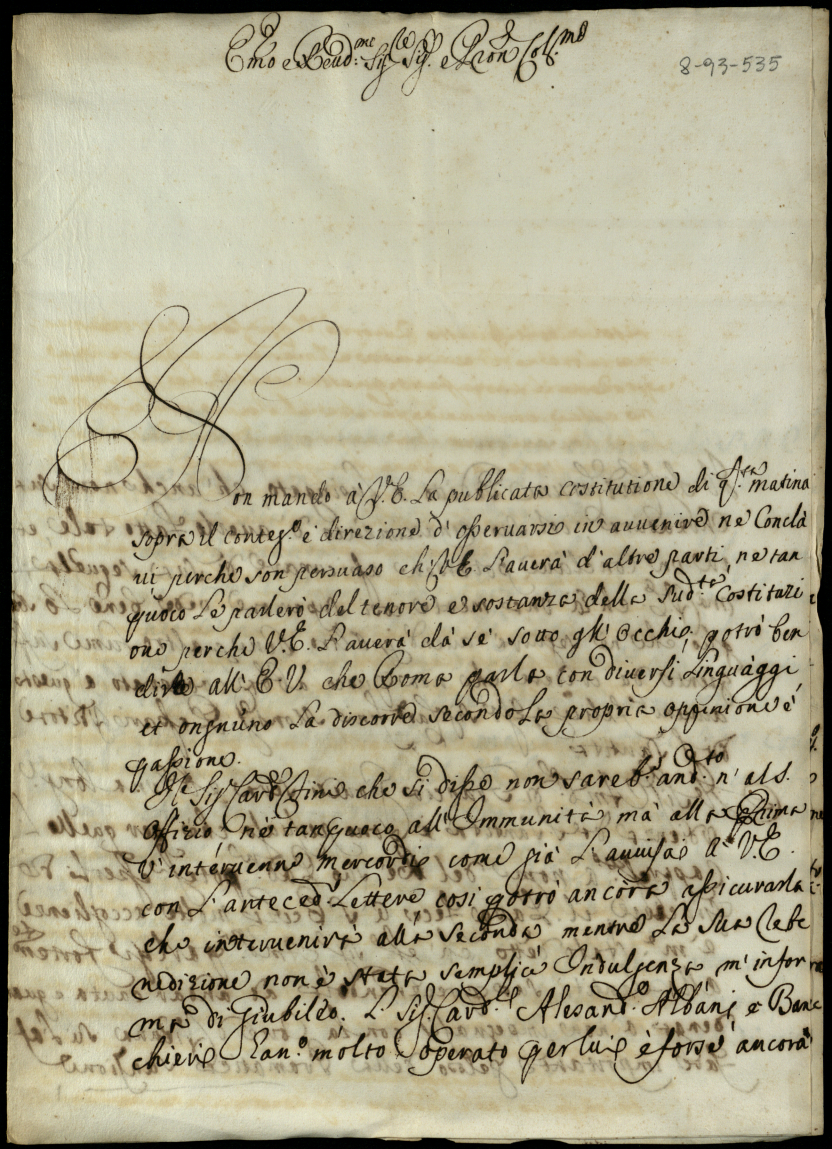 Emo e Reud.mo Sig.re Sig.r e Pron Col.mo
8-93-535
Non mando à V.E. La publicata costitutione di q.sta matina
sopra il conteg.o e direzione d'osseruarsi in auuenire ne Concla
ui perche son persuaso ch V.E. L'auerà d'altre parti, ne tan
puoco Le parlerò del tenore e sostanza della sud.ta Costituzi
one perche V.E. L'auerà dà sè sotto gli occhi, potrò ben
dire all'E.V. che Roma parla con diuersi Linguàggi
et ongnuno La discorre secondo La propria oppinione è
passione.
Il Sig. Card. che si disse non sareb.e and.to n'al S.
Offizio nè tanpuoco all'Immunità mà alla Prima
V'interuenne mercordi come già L'auuisai à V.E.
con L'anteced.i Lettere cosi potrò ancora assicurarla
che interuenirà alla Seconda mentre La Sua
nedizione non è stata semplice Indulgenza m'infor
ma di Giubileo. L Sig. Card.li Alesand.o Albani e Ban
chieri han.o molto operato per lui è forse ancora